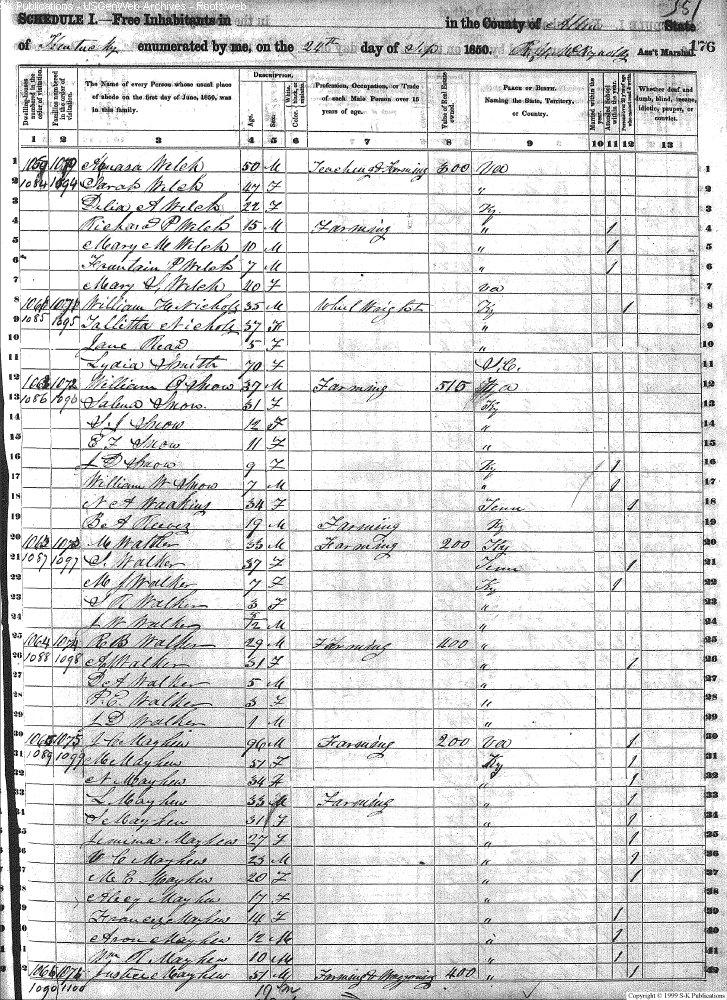 S-K Publications - USGenWeb Archives - Rootsweb
151
SCHEDULE I.—Free Inhabitants in in the County of Allen State
of Kentucky enumerated by me, on the 24th day of Sep 1850. Ass't Marshal. 176
Dwelling-houses numbered in the order of visitation.
Families numbered in the order of visitation.
The Name of every Person whose usual place of abode on the first day of June, 1850, was in this family.
DESCRIPTION.
Age.
Sex.
Profession, Occupation, or Trade of each Male Person over 15 years of age.
Value of Real Estate owned.
PLACE OF BIRTH.
Naming the State, Territory, or Country.
Married within the year.
Whether deaf and dumb, blind, insane, idiotic, pauper, or convict.
1 2 3 4 5 6 7 8 9 10 11 12 13
1 Welch 50 M Teaching & Farming 600 Va 1
1084 1094 Sarah Welch 47 F "
Delia A Welch 22 F Ky
Richard P Welch 15 M Farming " 1 4
Mary M Welch 10 M " 1 5
Fountain P Welch 7 M " 1 6
Mary S Welch 20 F Va
8 William H Nichols 35 M Whul Wright Ky 1 8
1085 1095 Tallitha Nichols 37 F " 9
Jane Read 5 F " 10
11 Lydia Smith 70 F S.C. 11
12 1072 William Snow 37 M Farming 515 12
13 1086 Salena Snow 31 F Ky 13
S J Snow 12 F " 14
E F Snow 11 F " 15
16 J D Snow 9 F Ky 1 16
William W Snow 7 M " 1 17
N A Waakins 34 F Tenn 1 18
B A Reeves 19 M Farming Ky 19
20 1063 1073 M Walker 33 M Farming 200 Ky 20
21 1087 1097 S. Walker 37 F Tenn 1 21
M J Walker 7 F Ky 1 22
S R Walker 3 F " 23
J W Walker M " 24
25 1064 1074 R B Walker 29 M Farming 400 " 25
1088 1098 Walker 31 F " 1 26
D A Walker 5 M " 27
P. E. Walker 3 F " 28
J D Walker 1 M " 29
30 1065 1075 J C Mayhew 96 M Farming 200 Va 1 30
31 1089 1099 M Mayhew 51 F Ky 1 31
N Mayhew 34 F " 1 32
L Mayhew 33 M Farming " 1 33
S Mayhew 31 F " 1
Jemima Mayhew 27 F " 1
W C Mayhew 23 M " 1
M E Mayhew 20 F " 1
Alcey Mayhew 17 F "
Frances Mayhew 14 F " 1
Aron Mayhew 12 M " 1
Wm R Mayhew 10 M " 1
1066 1076 Justice Mayhew 51 M Farming & Waggoning 400 " 1
1090 1100 19 m
Copyright © 1999 S-K Publications